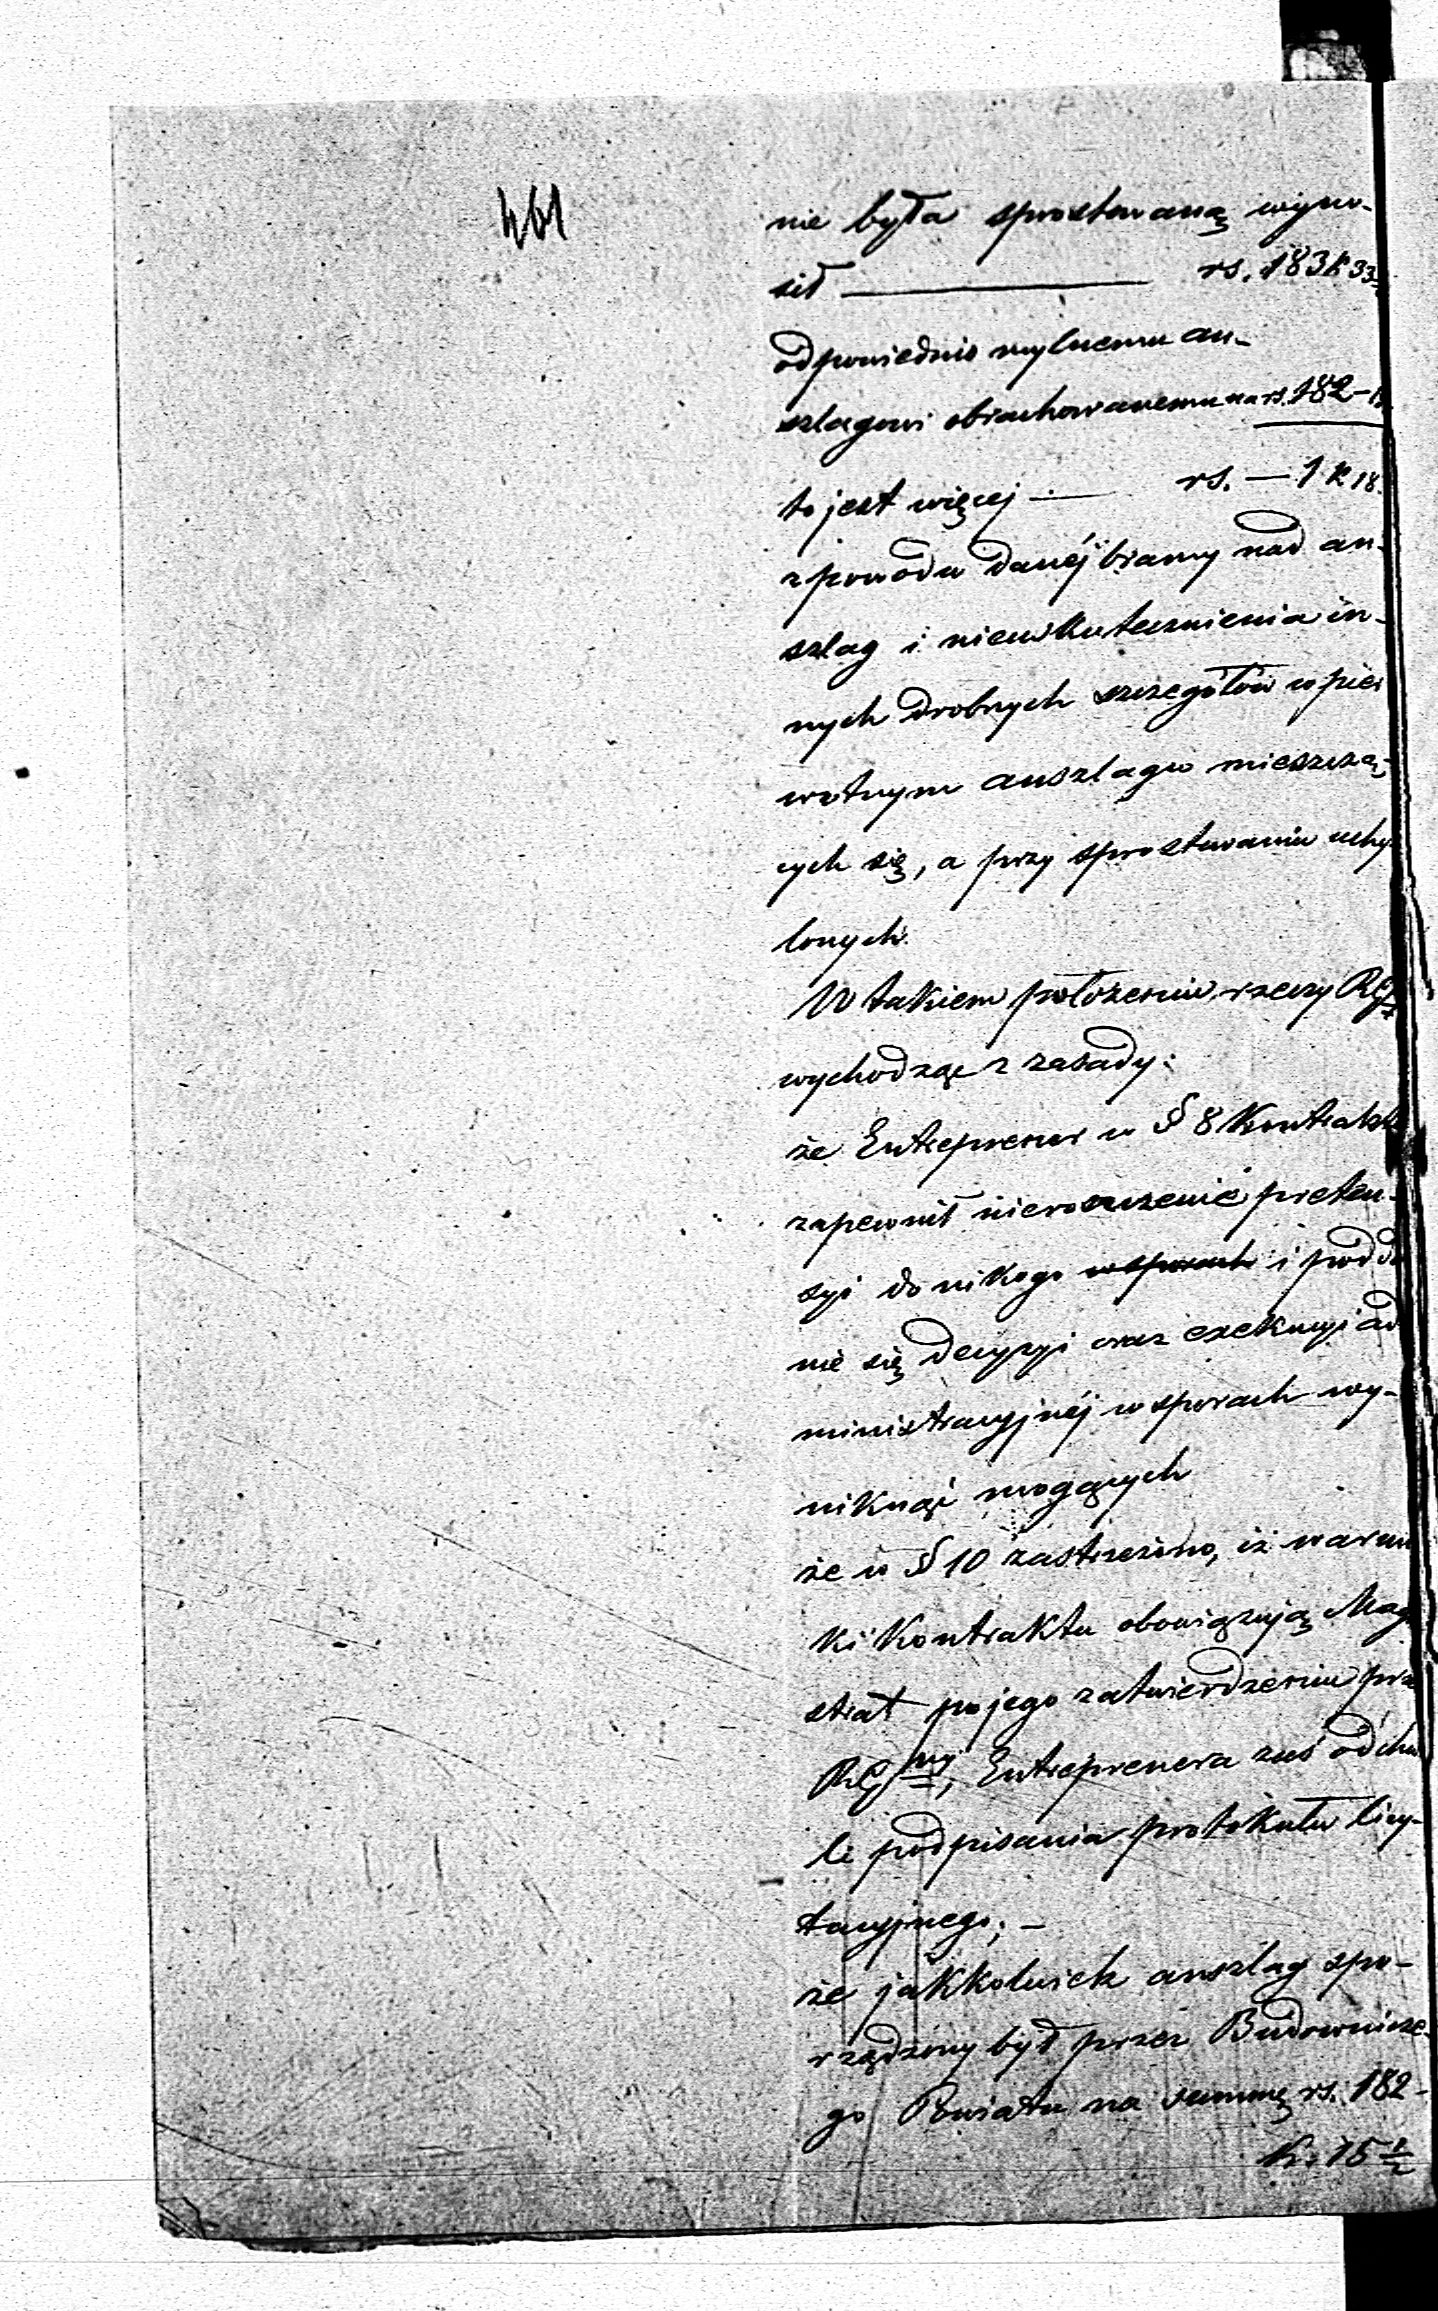 461
nie była sprostowaną wyno-
sił ——— rs. 183 k 33
odpowiednio mylnemu an-
szlagowi obrachowanemu na rs. 182 – 1
to jest więcej — rs. — 1 k 18
z powodu danéj bramy nad an-
szlag i nieuskutecznienia in-
nych drobnych szczegółów w pier
wotnym anszlagu mieszczą-
cych się, a przy sprostowaniu uchy
lonych.
W takiem położeniu rzeczy RG
wychodząc z zasady:
że Entreprener w § 8 Kontrakt
zapewnił nieroszczenie preten-
syi do nikogo w sporach i podda
nie się decyzyi oraz exekucyi ad
ministracyjnéj w sporach wy-
niknąć mogących
że w § 10 zastrzeżono, iż warun
ki Kontraktu obowiązują Mag
strat po jego zatwierdzeniu prz
RG ny, Entreprenera zaś od chw
li podpisania protokułu licy-
tacyjnego; —
że jakkolwiek anszlag spo-
rządzony był przez Budownicze-
go Powiatu na summę rs. 182 -
k. 15 1/2